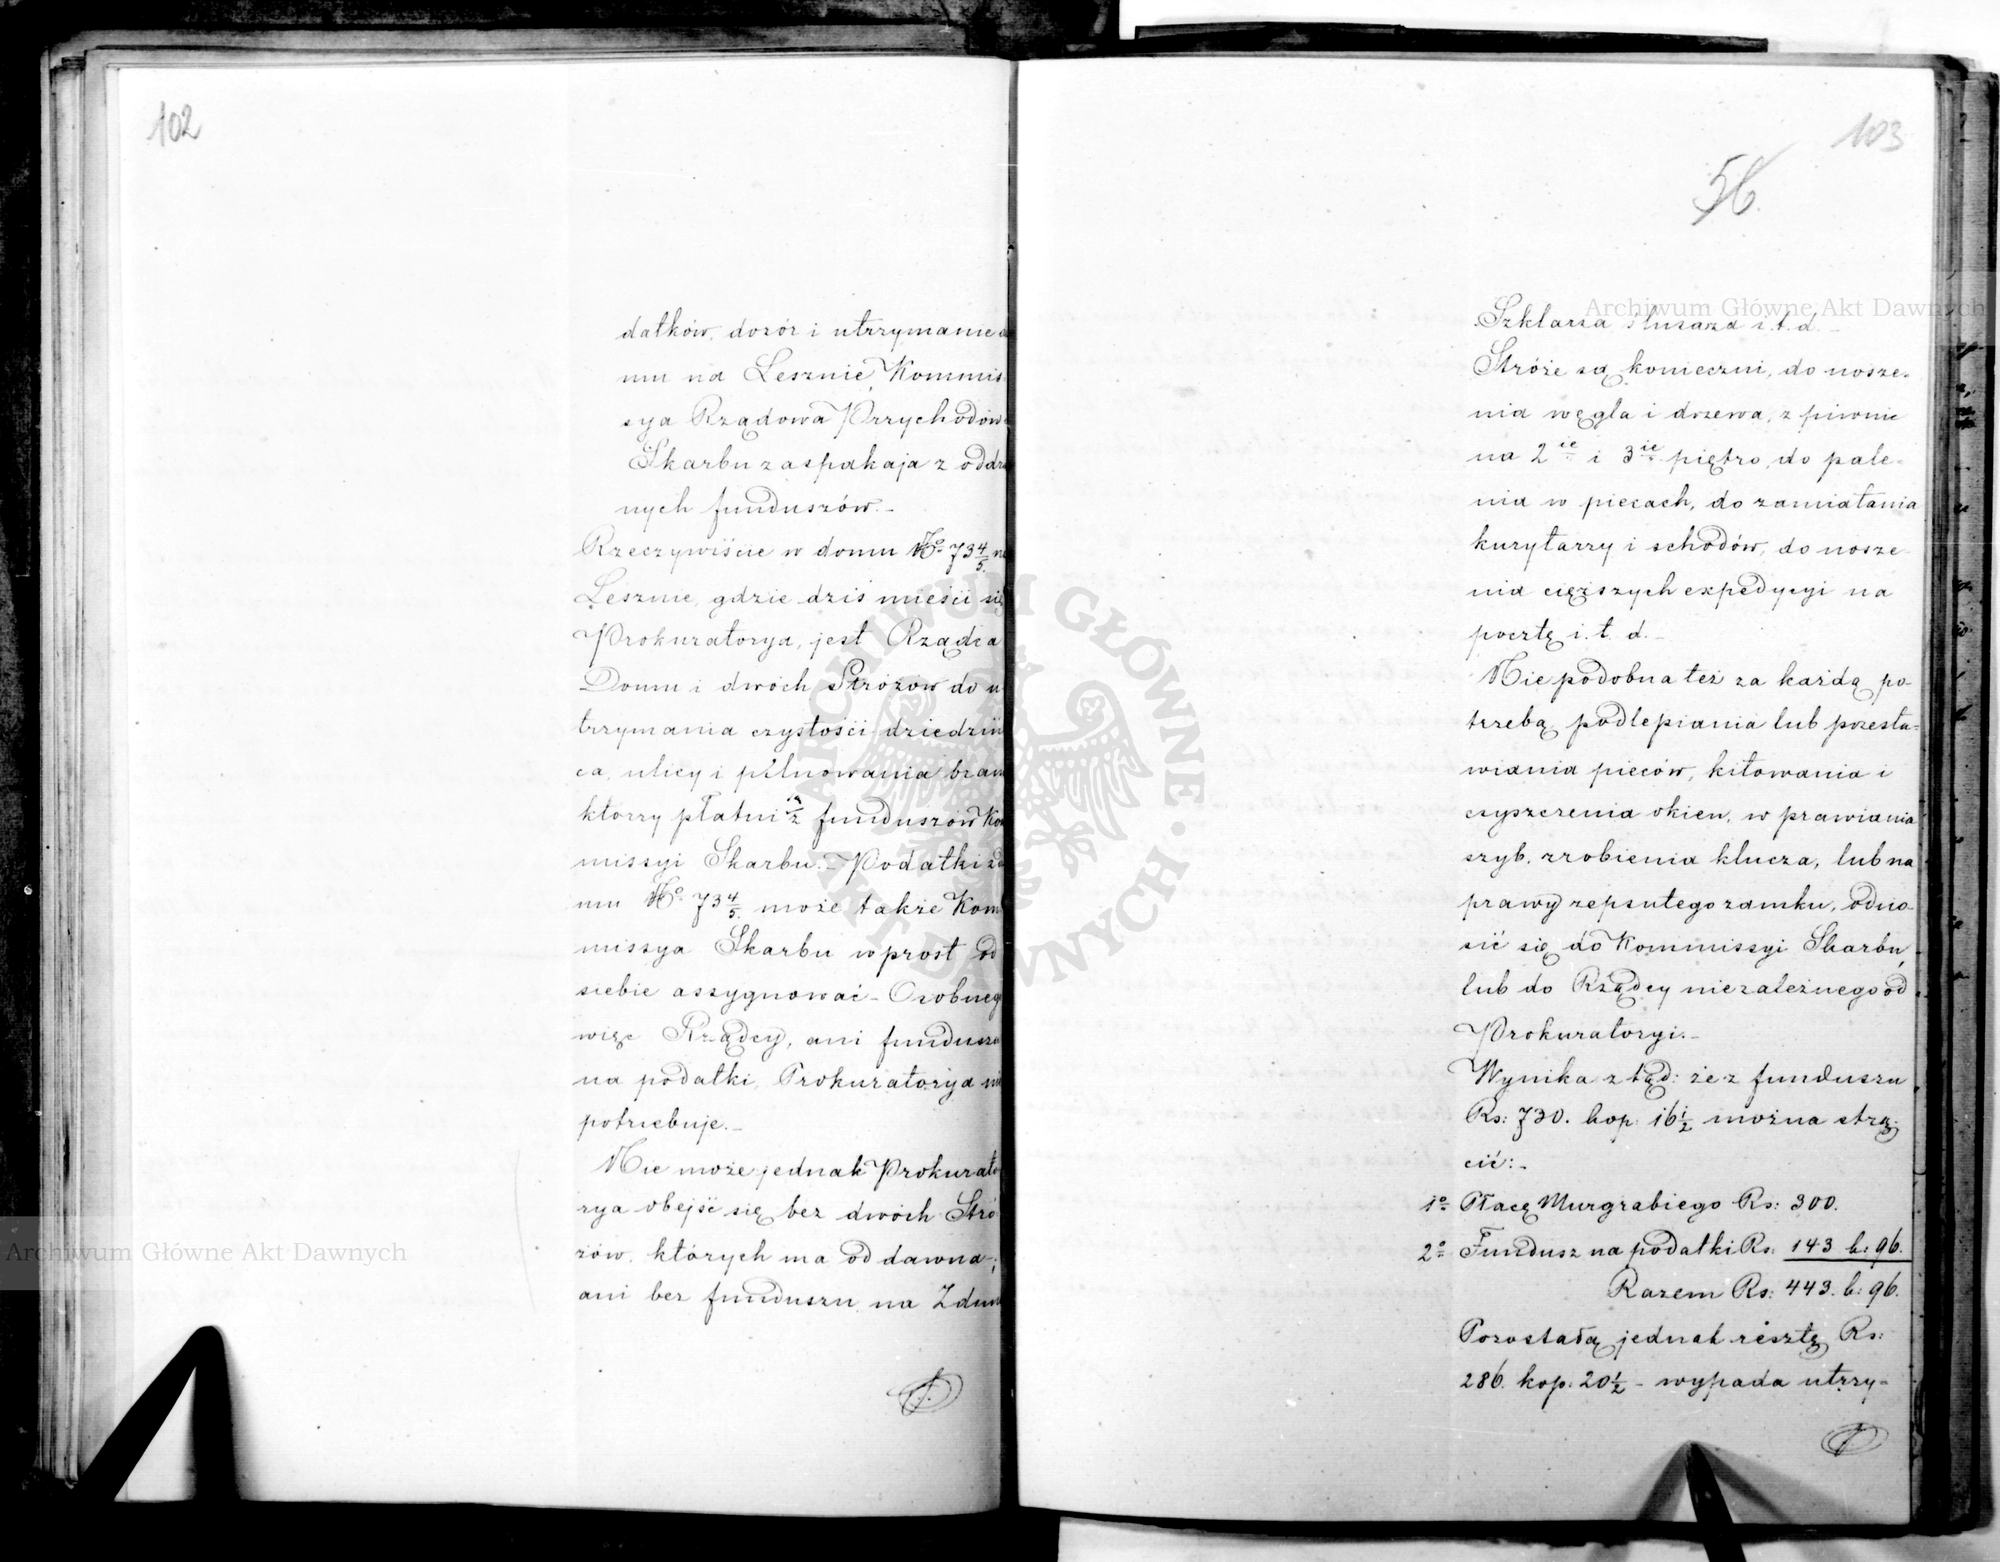 102
datków, dozór i utrzymanie
mu na Lesznie, Kommis-
sya Rządowa Przychodów
Skarbu zaspakaja z oddzi
nych funduszów.-
Rzeczywiście w domu No 73 4/5 na
Lesznie, gdzie dziś mieści się
Prokuratorya, jest Rządca
Domu i dwóch Stróżów do u
trzymania czystości dziedziń
ca, ulicy i pilnowania bram
którzy płatni są z funduszów Kom
missyi Skarbu.- Podatki z do
mu No 73 4/5 może także Kom
missya Skarbu wprost od
siebie assygnować - Osobneg
więc Rządcy, ani fundusz
na podatki, Prokuratorya ni
potrzebuje.-
Nie może jednak Prokurato
rya obejść się bez dwóch Stró
żów, których ma od dawna-;
ani bez funduszu na Zdun
103
56.
Szklarza slusarza i.t.d.-
Stróże są konieczni, do nosze-
nia węgla i drzewa, z piwnic
na 2ie i 3ie piętro, do pale-
nia w piecach, do zamiatania
kurytarzy i schodów, do nosze-
nia cięższych expedycyi na
pocztę i.t.d.-
Nie podobna też za każdą po-
trzebą podlepiania lub przesta-
wiania pieców, kitowania i
czyszczenia okien, w prawiania
szyb, zrobienia klucza, lub na
prawy zepsutego zamku, odno-
sić się do Kommissyi Skarbu,
lub do Rządcy niezależnego od
Prokuratoryi.-
Wynika ztąd: że z funduszu
Rs: 730. kop: 16 1/2 można strą-
cić:-
1o Płacę Murgrabiego Rs: 300.
2o Fundusz na podatki Rs: 143 k: 96.
Razem Rs: 443. k: 96.
Pozostałą jednak resztę Rs:
286. kop: 20 1/2 - wypada utrzy-
Archiwum Główne Akt Dawnych
Archiwum Główne Akt Dawnych
ARCHIWUM GŁÓWNE · AKT DAWNYCH ·